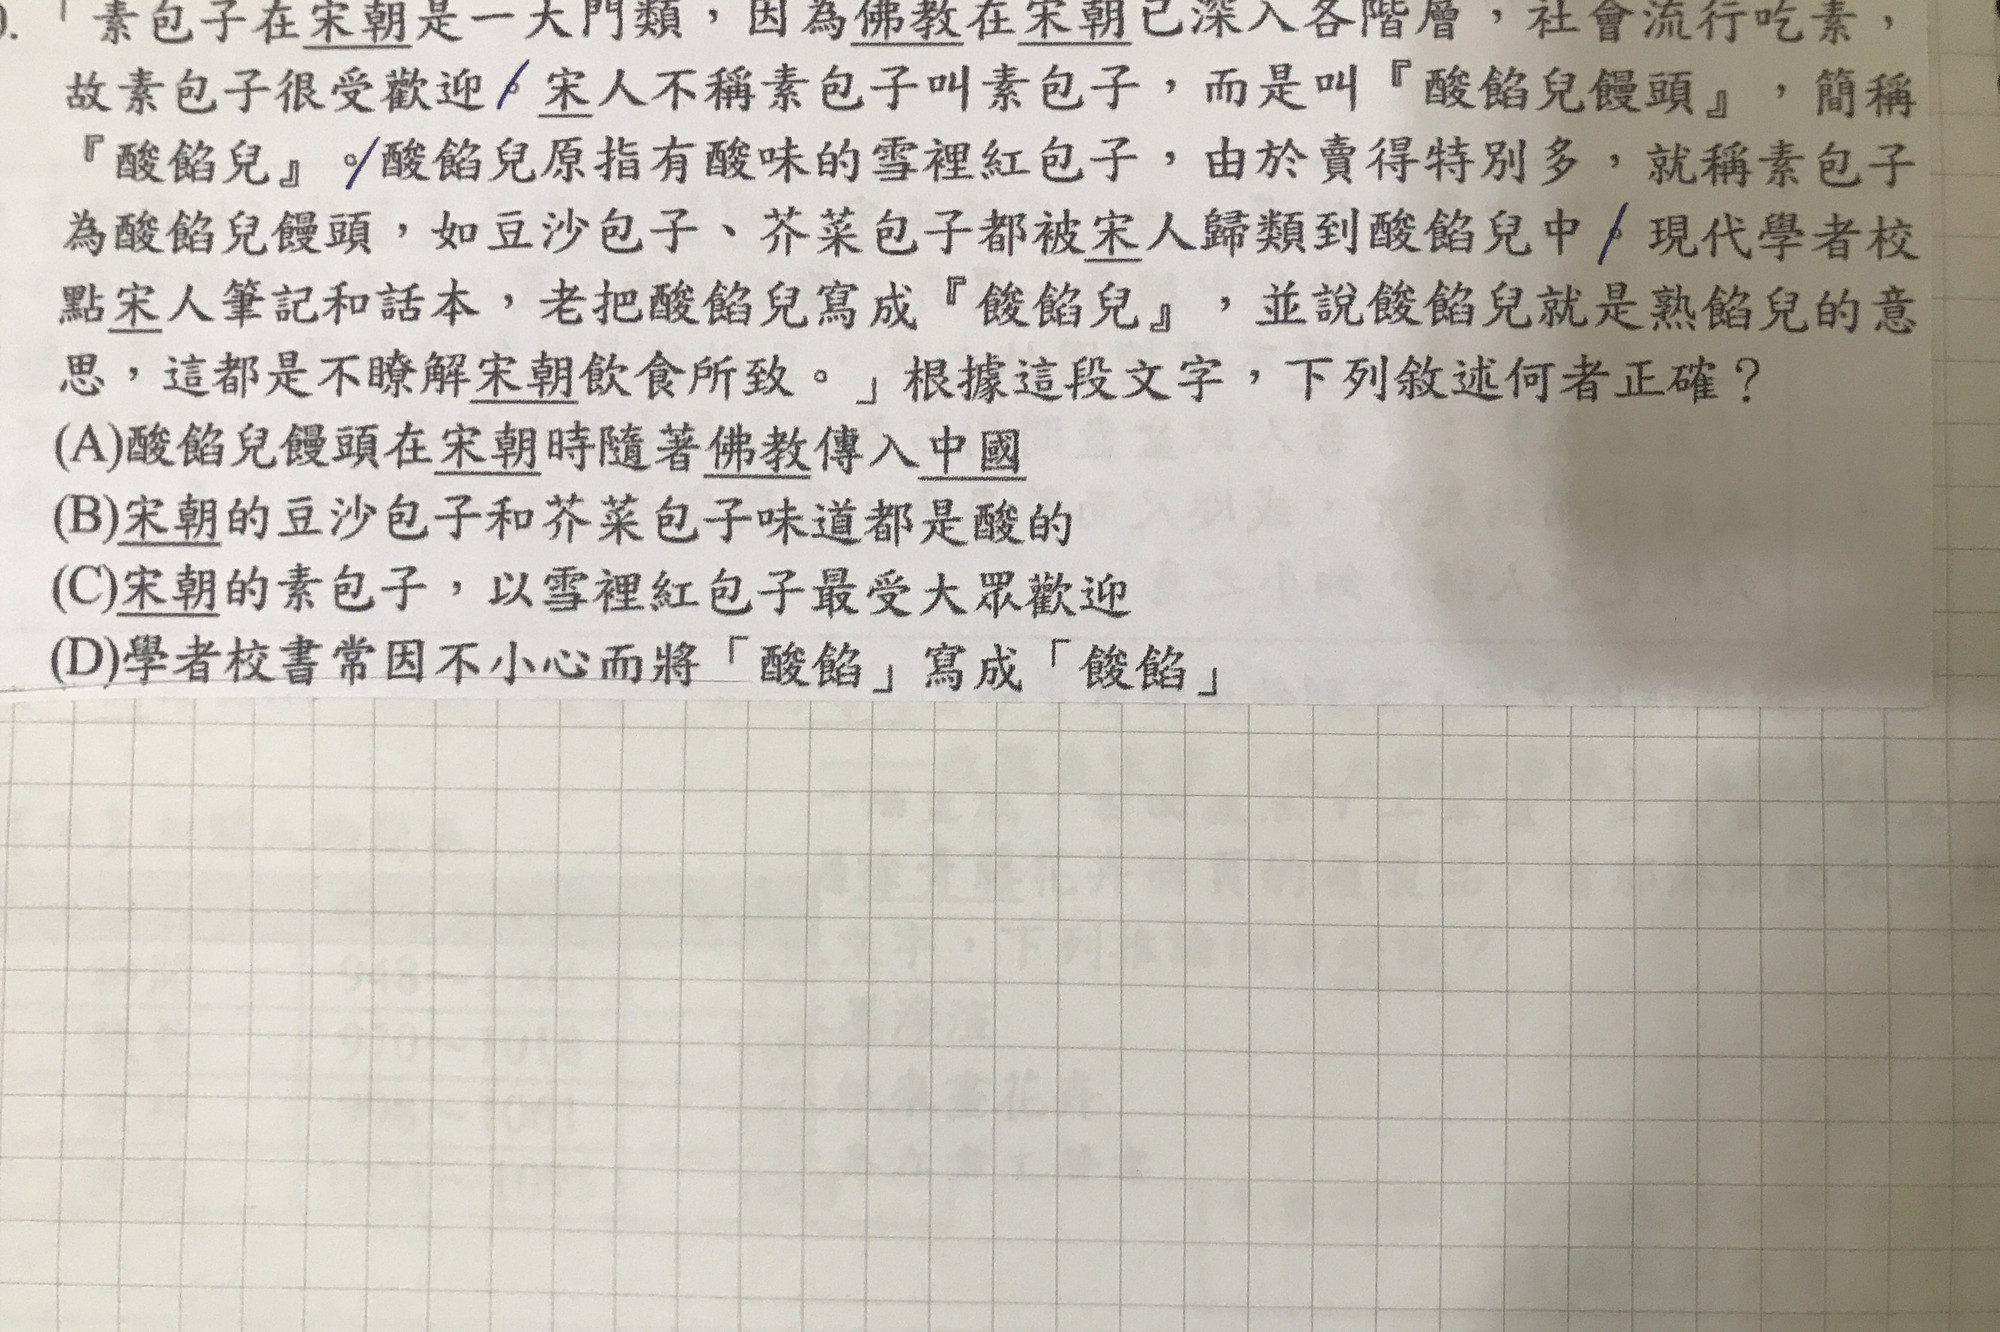 「素包子在宋朝是一大門類，因為佛教在宋朝已深入各階層，社會流行吃素，
故素包子很受歡迎。宋人不稱素包子叫素包子，而是叫『酸餡兒饅頭』，簡稱
『酸餡兒』。酸餡兒原指有酸味的雪裡紅包子，由於賣得特別多，就稱素包子
為酸餡兒饅頭，如豆沙包子、芥菜包子都被宋人歸類到酸餡兒中。現代學者校
點宋人筆記和話本，老把酸餡兒寫成『餕餡兒』，並說餕餡兒就是熟餡兒的意
思，這都是不瞭解宋朝飲食所致。」根據這段文字，下列敘述何者正確？
(A)酸餡兒饅頭在宋朝時隨著佛教傳入中國
(B)宋朝的豆沙包子和芥菜包子味道都是酸的
(C)宋朝的素包子，以雪裡紅包子最受大眾歡迎
(D)學者校書常因不小心而將「酸餡」寫成「餕餡」